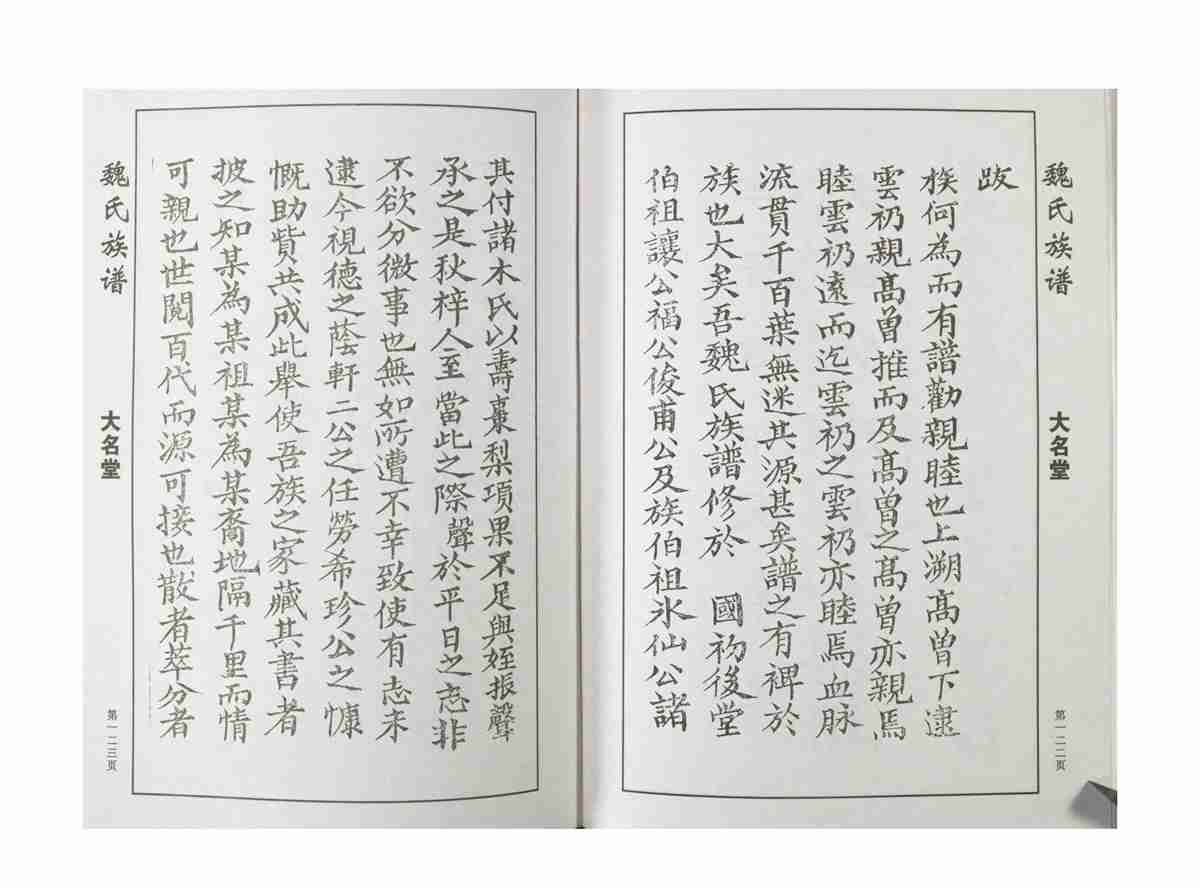 魏氏族谱
大名堂
第一二二页
跋
族何為而有譜勸親睦也上溯髙曾下逮
雲礽親髙曾推而及髙曾之髙曾亦親焉
睦雲礽遠而迄雲礽之雲礽亦睦焉血脉
流貫千百葉無迷其源甚矣譜之有裨於
族也大矣吾魏氏族譜修於 國初後堂
伯祖讓公福公俊甫公及族伯祖氷仙公諸
其付諸木氏以壽棗梨項果不足與姪振聲
承之是秋梓人至當此之際聲於平日之志非
不欲分微事也無如所遭不幸致使有志未
逮今視德之蔭軒二公之任勞希珍公之慷
慨助貲共成此舉使吾族之家藏其書者
披之知某為某祖某為某裔地隔千里而情
可親也世閲百代而源可接也散者萃分者
魏氏族谱
大名堂
第一二三页